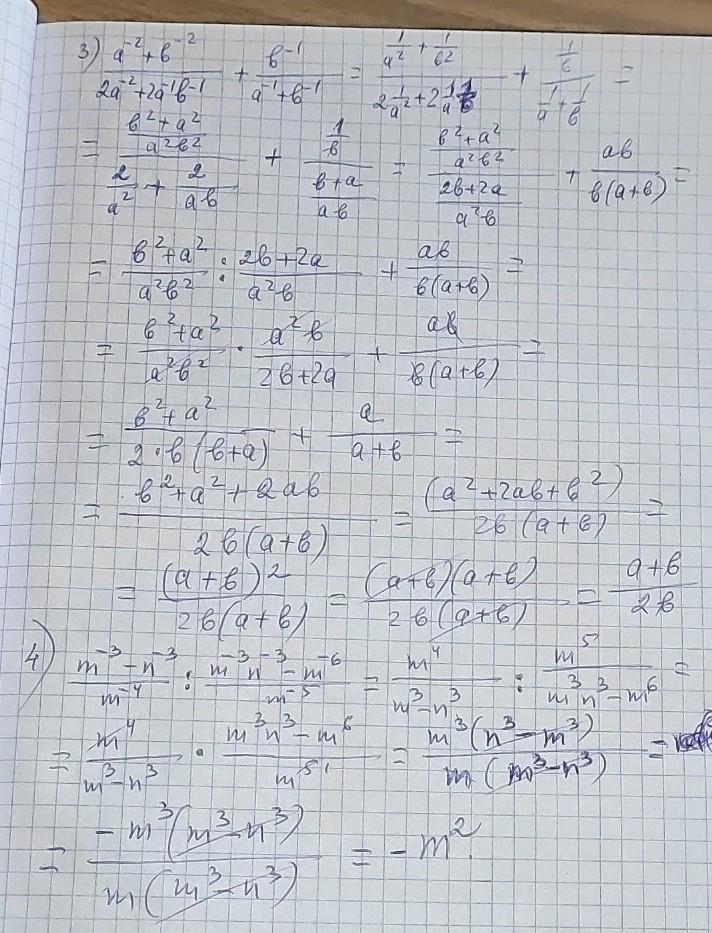 3) (a⁻²+b⁻²)/(2a⁻²+2a⁻¹b⁻¹) + b⁻¹/(a⁻¹+b⁻¹) = (1/a² + 1/b²)/(2 1/a² + 2 1/a 1/b) + (1/b)/(1/a + 1/b) =
= ((b²+a²)/(a²b²))/(2/a² + 2/(ab)) + (1/b)/((b+a)/(ab)) = ((b²+a²)/(a²b²))/((2b+2a)/(a²b)) + ab/(b(a+b)) =
= (b²+a²)/(a²b²) : (2b+2a)/(a²b) + ab/(b(a+b)) =
= (b²+a²)/(a²b²) · (a²b)/(2b+2a) + ab/(b(a+b)) =
= (b²+a²)/(2·b(b+a)) + a/(a+b) =
= (b²+a²+2ab)/(2b(a+b)) = (a²+2ab+b²)/(2b(a+b)) =
= (a+b)²/(2b(a+b)) = (a+b)(a+b)/(2b(a+b)) = (a+b)/(2b)
4) (m⁻³-n⁻³)/m⁻⁴ : (m⁻³n⁻³-m⁻⁶)/m⁻⁵ = m⁴/(m³-n³) : m⁵/(m³n³-m⁶) =
= m⁴/(m³-n³) · (m³n³-m⁶)/m⁵ = m³(n³-m³)/(m(m³-n³)) =
= -m³(m³-n³)/(m(m³-n³)) = -m².